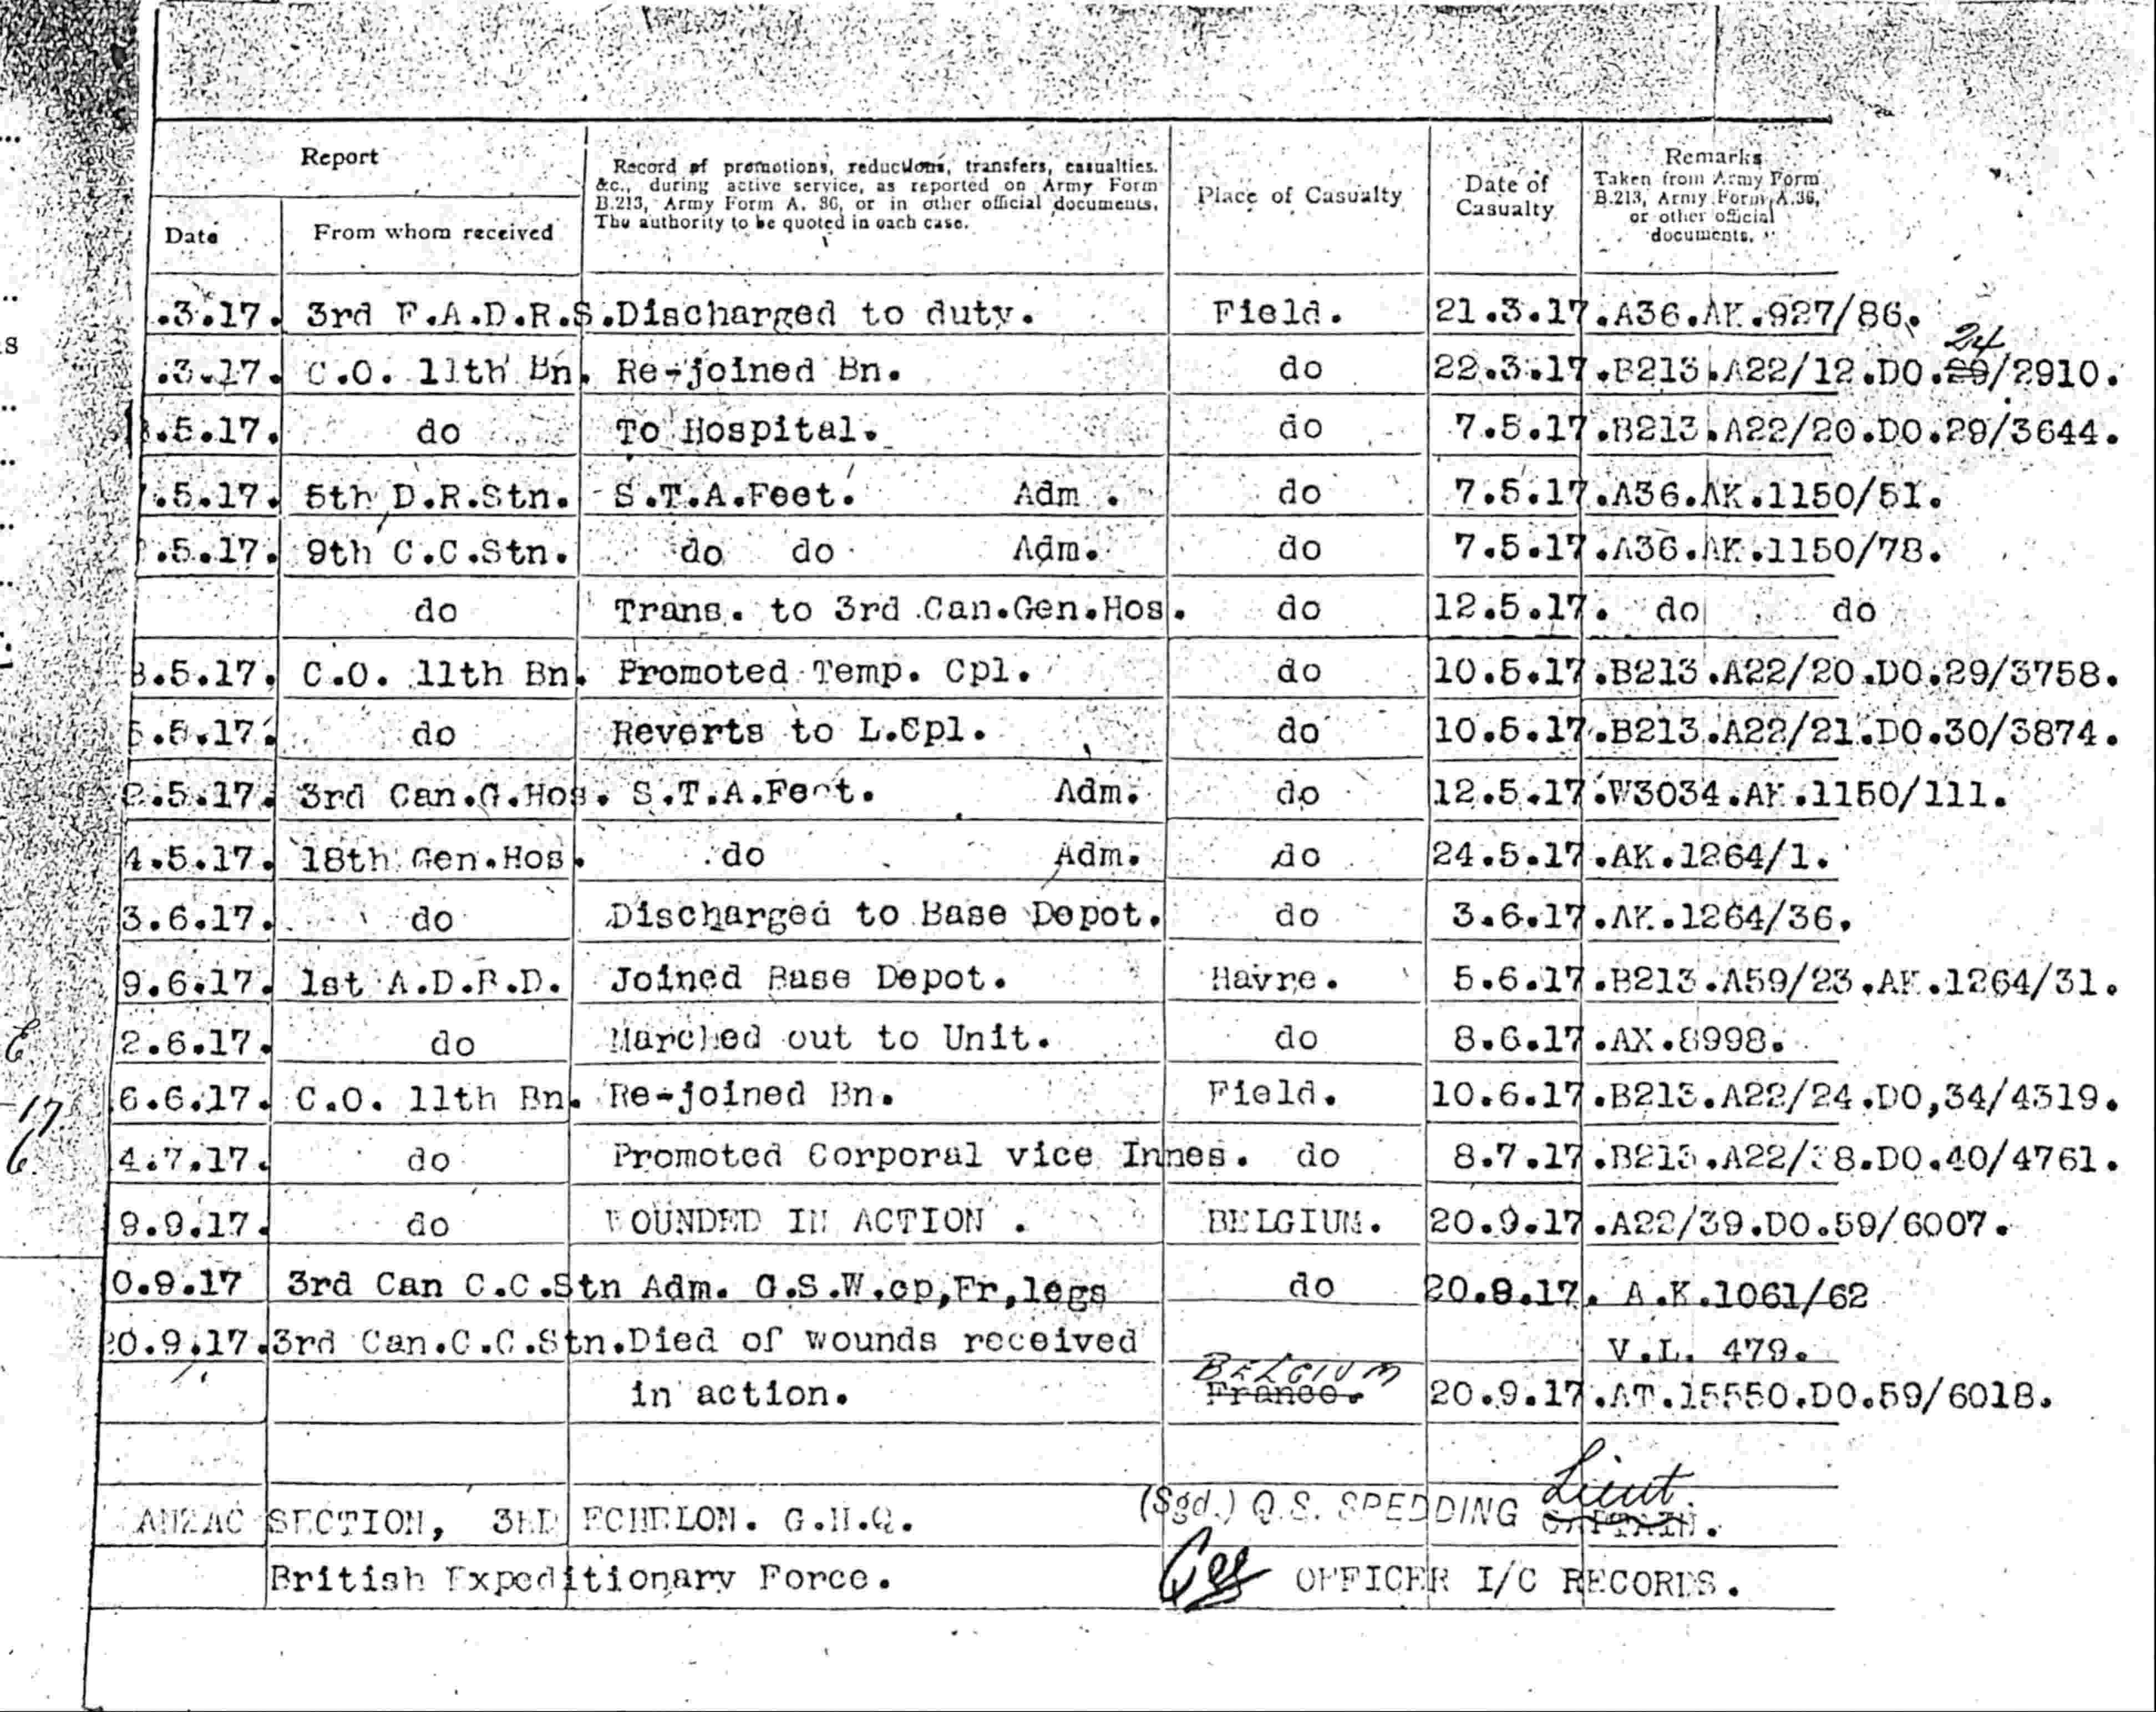 Report
Record of promotions, reductions, transfers, casualties.
&c., during active service, as reported on Army Form
B.213, Army Form A. 36, or in other official documents.
The authority to be quoted in each case.
Place of Casualty
Date of
Casualty
Remarks
Taken from Army Form
B.213, Army Form A.36,
or other official
documents.
Date From whom received
.3.17. 3rd F.A.D.R.S. Discharged to duty. Field. 21.3.17. A36.AK.927/86.
24
.3.17. C.O. 11th Bn. Re-joined Bn. do 22.3.17. B213.A22/12.DO.29/2910.
.5.17. do To Hospital. do 7.5.17. B213.A22/20.DO.29/3644.
.5.17. 5th D.R.Stn. S.T.A.Feet. Adm. do 7.5.17. A36.AK.1150/51.
.5.17. 9th C.C.Stn. do do Adm. do 7.5.17. A36.AK.1150/78.
do Trans. to 3rd Can.Gen.Hos. do 12.5.17. do do
8.5.17. C.O. 11th Bn. Promoted Temp. Cpl. do 10.5.17. B213.A22/20.DO.29/3758.
5.5.17. do Reverts to L.Cpl. do 10.5.17. B213.A22/21.DO.30/3874.
2.5.17. 3rd Can.G.Hos. S.T.A.Feet. Adm. do 12.5.17. W3034.AK.1150/111.
4.5.17. 18th Gen.Hos. do Adm. do 24.5.17. AK.1264/1.
3.6.17. do Discharged to Base Depot. do 3.6.17. AK.1264/36.
9.6.17. 1st A.D.B.D. Joined Base Depot. Havre. 5.6.17. B213.A59/23.AK.1264/31.
2.6.17. do Marched out to Unit. do 8.6.17. AX.8998.
6.6.17. C.O. 11th Bn. Re-joined Bn. Field. 10.6.17. B213.A22/24.DO,34/4319.
4.7.17. do Promoted Corporal vice Innes. do 8.7.17. B213.A22/38.DO.40/4761.
9.9.17. do WOUNDED IN ACTION. BELGIUM. 20.9.17. A22/39.DO.59/6007.
0.9.17 3rd Can C.C.Stn Adm. G.S.W.cp,Fr,legs do 20.9.17. A.K.1061/62
20.9.17. 3rd Can.C.C.Stn. Died of wounds received V.L. 479.
BELGIUM
in action. France. 20.9.17. AT.15550.DO.59/6018.
Lieut.
ANZAC SECTION, 3RD ECHELON. G.H.Q. (Sgd.) Q.S. SPEDDING CAPTAIN.
British Expeditionary Force. OFFICER I/C RECORDS.